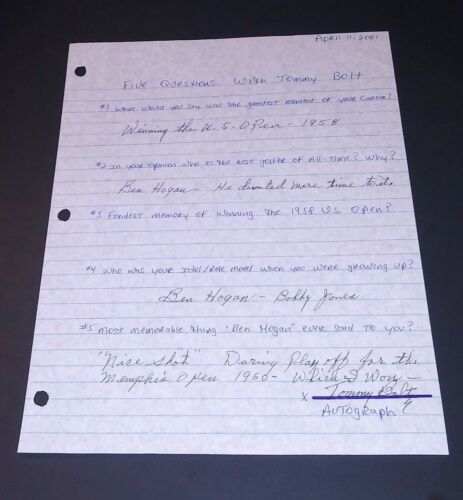 April 11, 2001
Five Questions with Tommy Bolt
#1 What would you say was the greatest moment of your career?
Winning the U.S. Open - 1958
#2 In your opinion who is the best golfer of All-Time? Why?
Ben Hogan - He devoted more time to it.
#3 Fondest memory of winning the 1958 U.S. Open?
#4 Who was your idol/role model when you were growing up?
Ben Hogan - Bobby Jones
#5 Most memorable thing "Ben Hogan" ever said to you?
"Nice shot" During Play off for the
Memphis Open 1960 - Which I Won -
x Tommy Bolt
Autograph